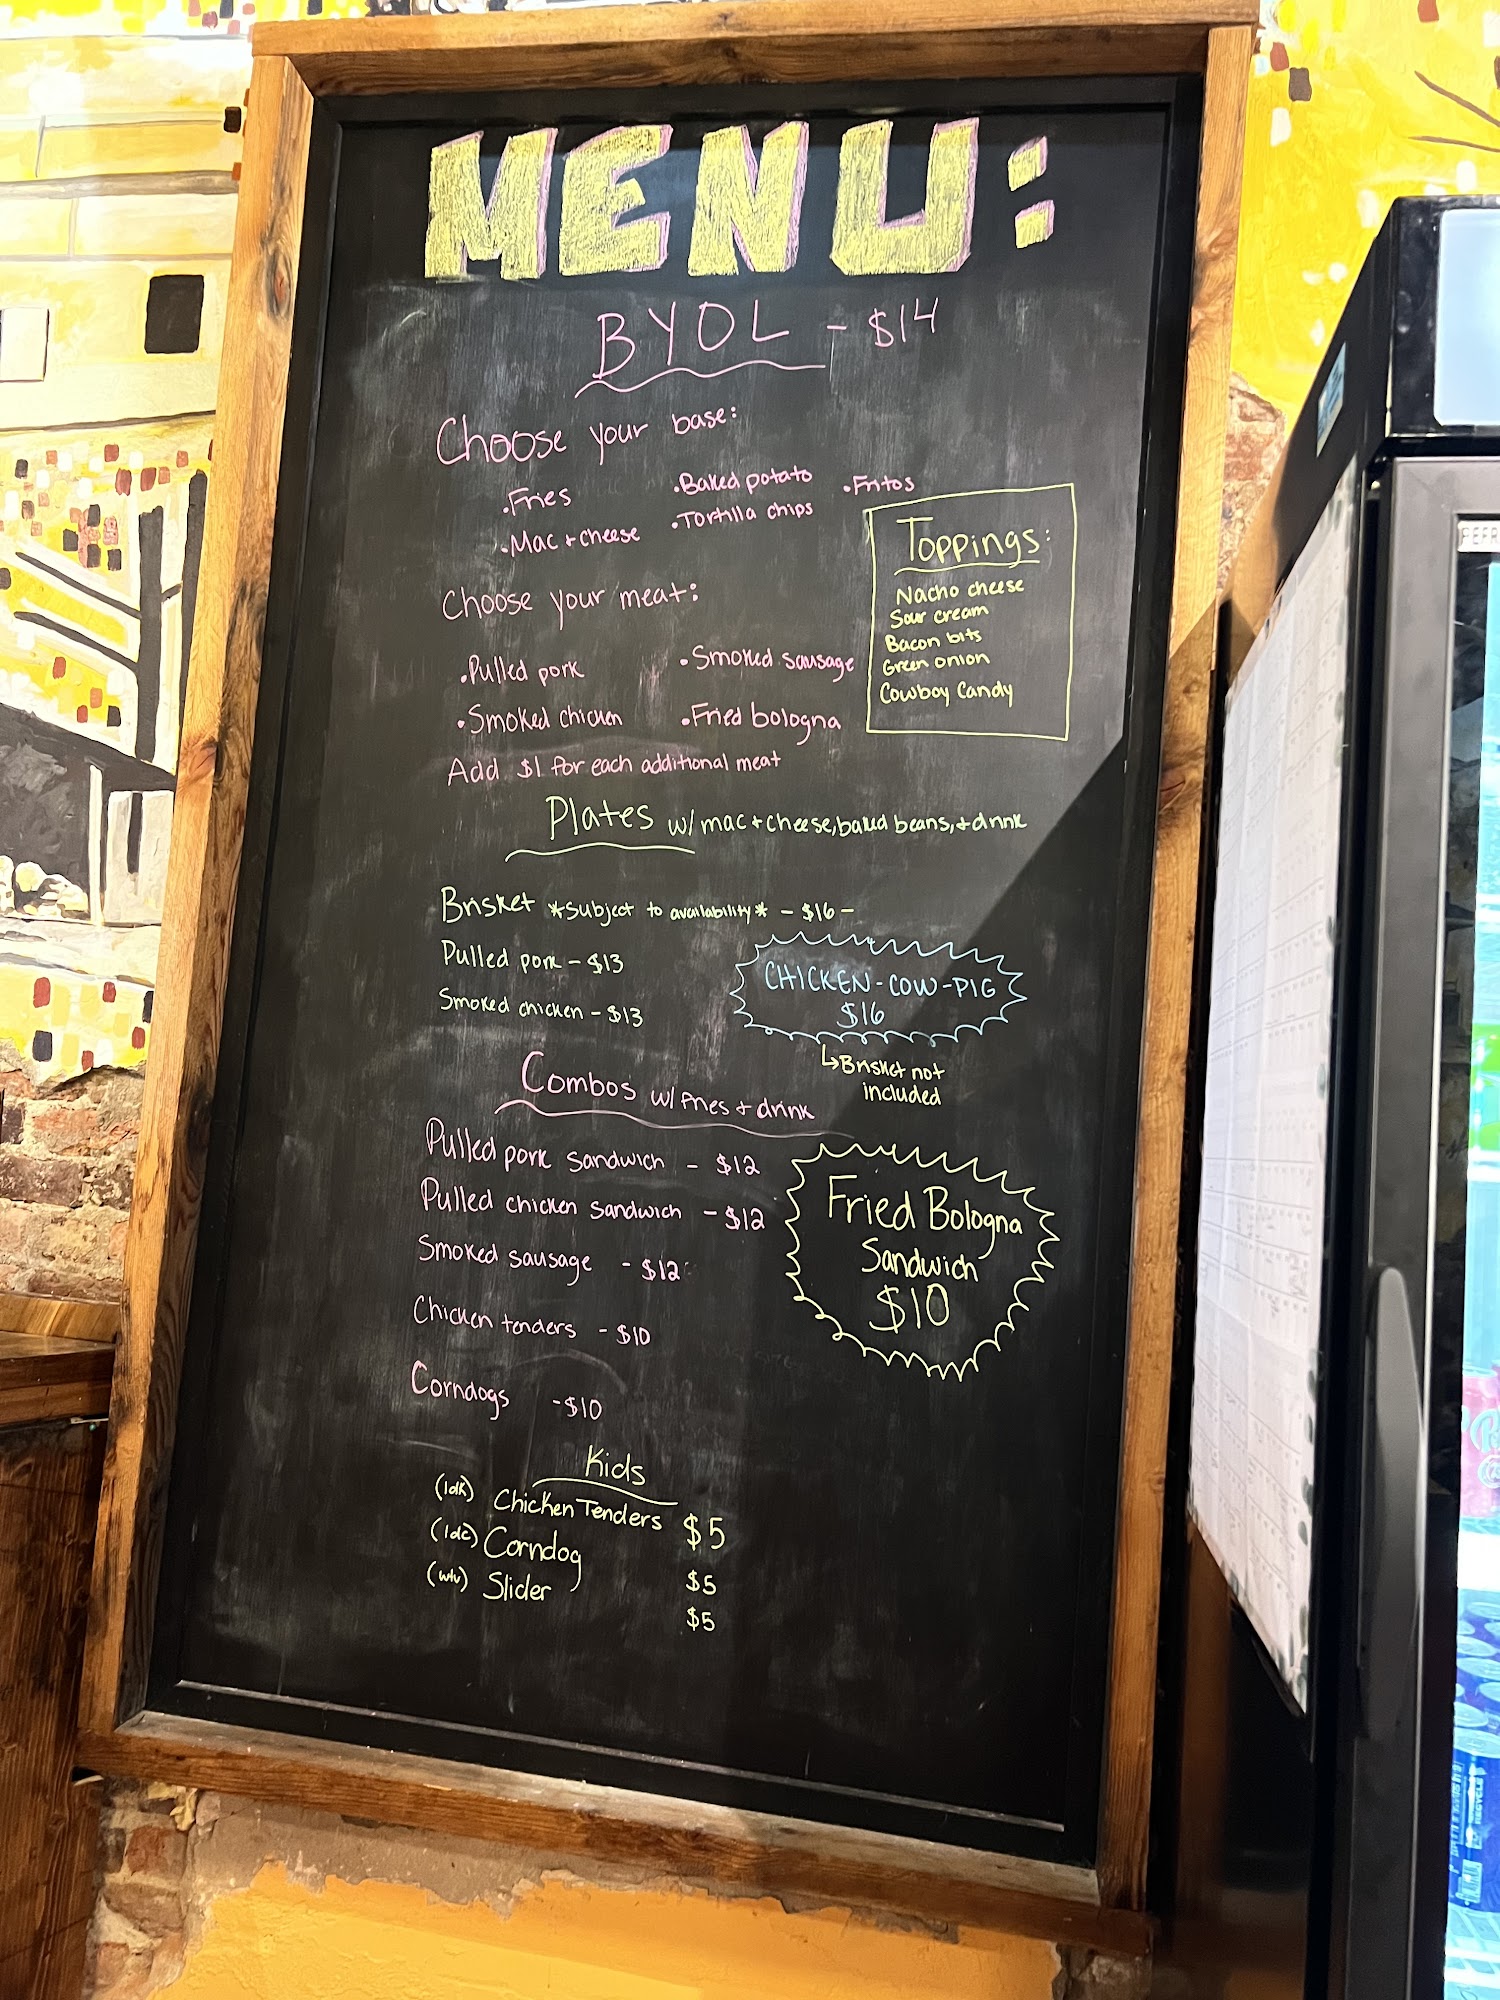 MENU:
BYOL - $14
Choose your base:
•Fries •Baked potato •Fritos
•Mac + cheese •Tortilla chips
Toppings:
Nacho cheese
Sour cream
Bacon bits
Green onion
Cowboy Candy
Choose your meat:
•Pulled pork •Smoked sausage
•Smoked chicken •Fried bologna
Add $1 for each additional meat
Plates w/ mac + cheese, baked beans, + drink
Brisket *subject to availability* - $16 -
Pulled pork - $13
Smoked chicken - $13
CHICKEN-COW-PIG
$16
↳Brisket not
included
Combos w/ fries + drink
Pulled pork sandwich - $12
Pulled chicken sandwich - $12
Smoked sausage - $12
Chicken tenders - $10
Corndogs - $10
Fried Bologna
Sandwich
$10
Kids
(Idk) Chicken Tenders $5
(Idc) Corndog $5
Slider $5